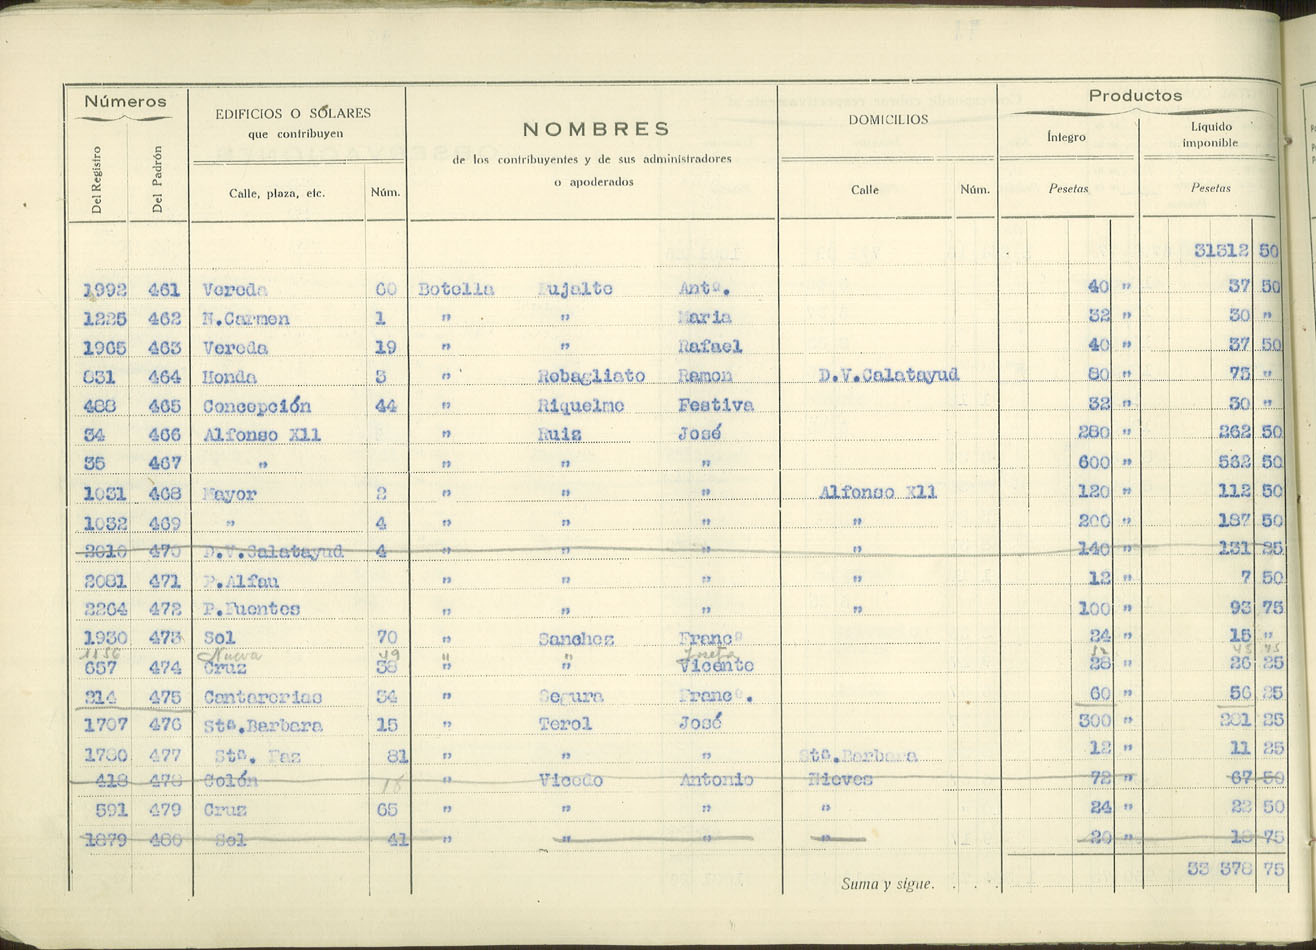 Números
EDIFICIOS O SOLARES
que contribuyen
NOMBRES
de los contribuyentes y de sus administradores
o apoderados
DOMICILIOS
Productos
Íntegro
Líquido
imponible
Del Registro
Del Padrón
Calle, plaza, etc.
Núm.
Calle
Núm.
Pesetas
Pesetas
31312 50
1992 461 Vereda 60 Botella Pujalte Antº. 40 " 37 50
1225 462 N.Carmen 1 " " Maria 32 " 30 "
1965 463 Vereda 19 " " Rafael 40 " 37 50
831 464 Honda 3 " Rebagliato Ramon D.V.Calatayud 80 " 75 "
488 465 Concepción 44 " Riquelme Festiva 32 " 30 "
34 466 Alfonso X11 " Ruiz José 280 " 262 50
35 467 " " " " 600 " 562 50
1031 468 Mayor 2 " " " Alfonso X11 120 " 112 50
1032 469 " 4 " " " " 200 " 187 50
2010 470 D.V.Calatayud 4 " " " " 140 " 131 25
2081 471 P.Alfau " " " " 12 " 7 50
2264 472 P.Fuentes " " " " 100 " 93 75
1930 473 Sol 70 " Sanchez Francº 24 " 15 "
1156 Nueva 49 " " Josefa 43 75
657 474 Cruz 38 " " Vicente 28 " 26 25
214 475 Cantarerias 34 " Segura Francº. 60 " 56 25
1707 476 Stª.Barbara 15 " Terol José 300 " 281 25
1780 477 Stª. Faz 81 " " " Stª.Barbara 12 " 11 25
418 478 Colón 16 " Vicedo Antonio Nieves 72 " 67 50
591 479 Cruz 65 " " " " 24 " 22 50
1879 480 Sol 41 " " " " 20 " 18 75
33 378 75
Suma y sigue. . . .